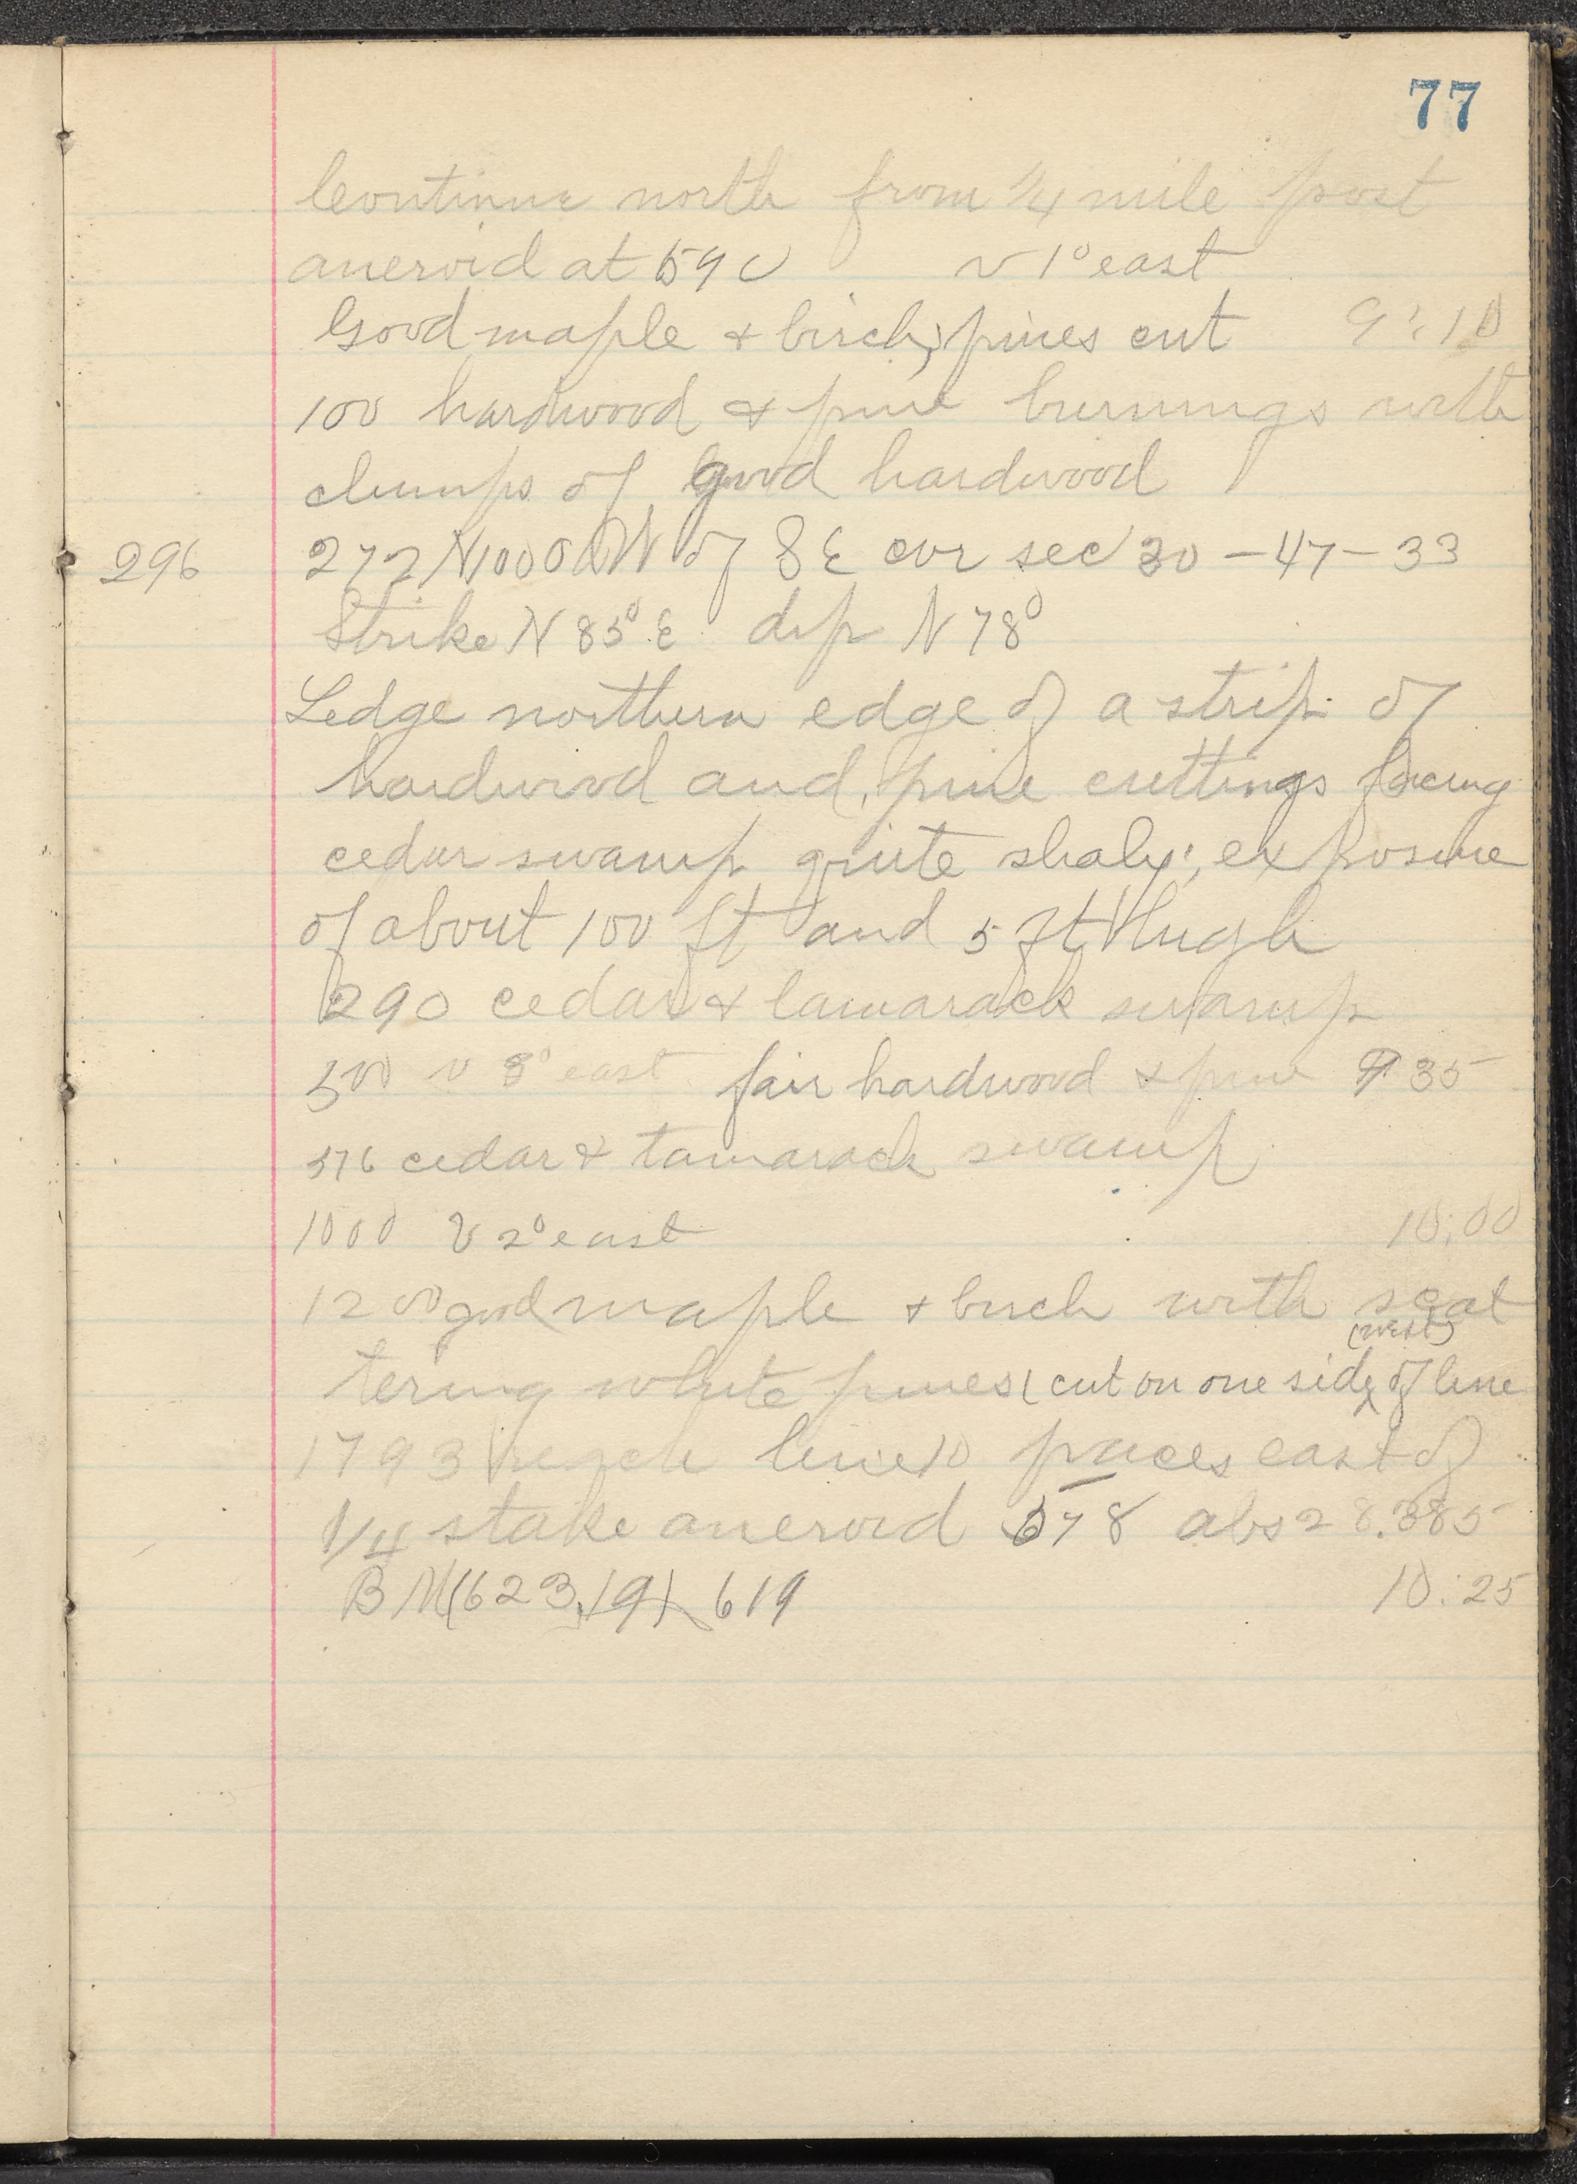 77
Continue north from 1/4 mile post
aneroid at 590 v 1° east
Good maple & birch, pines cut 9:10
100 hardwood & pine burnings with
clumps of good hardwood
296 272 N 1000 W of SE cor sec 30-47-33
Strike N 85° E dip N 78°
Ledge northern edge of a strip of
hardwood and pine cuttings facing
cedar swamp quite shaly; exposure
of about 100 ft and 5 ft high
290 cedar & tamarack swamp
500 v 3° east fair hardwood & pine 935
576 cedar & tamarack swamp
1000 V 2° east 10:00
1200 good maple & birch with scat
(west)
tering white pines (cut on one side of line
1793 reach line 10 paces east of
1/4 stake aneroid 578 abs 28.385
B M (623.19) 619 10:25